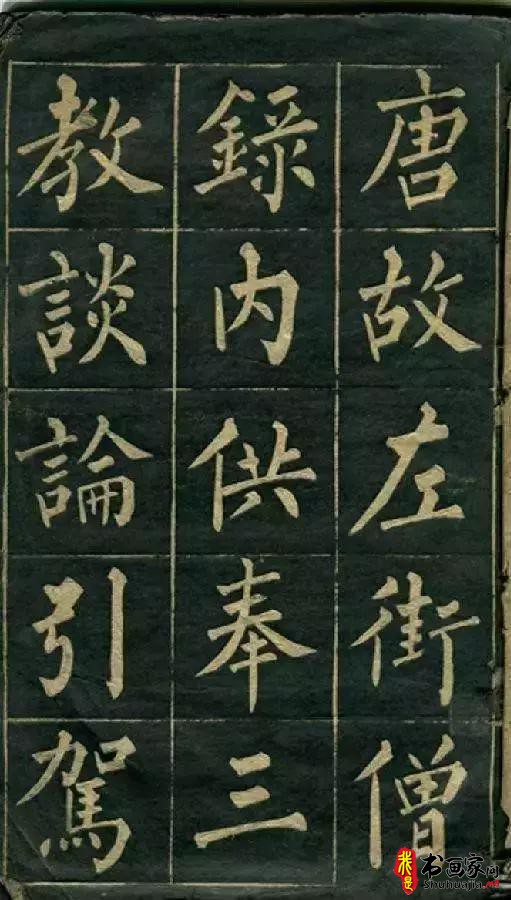 唐故左街僧
錄内供奉三
教談論引駕
我是
书画家网
Shuhuajia.net